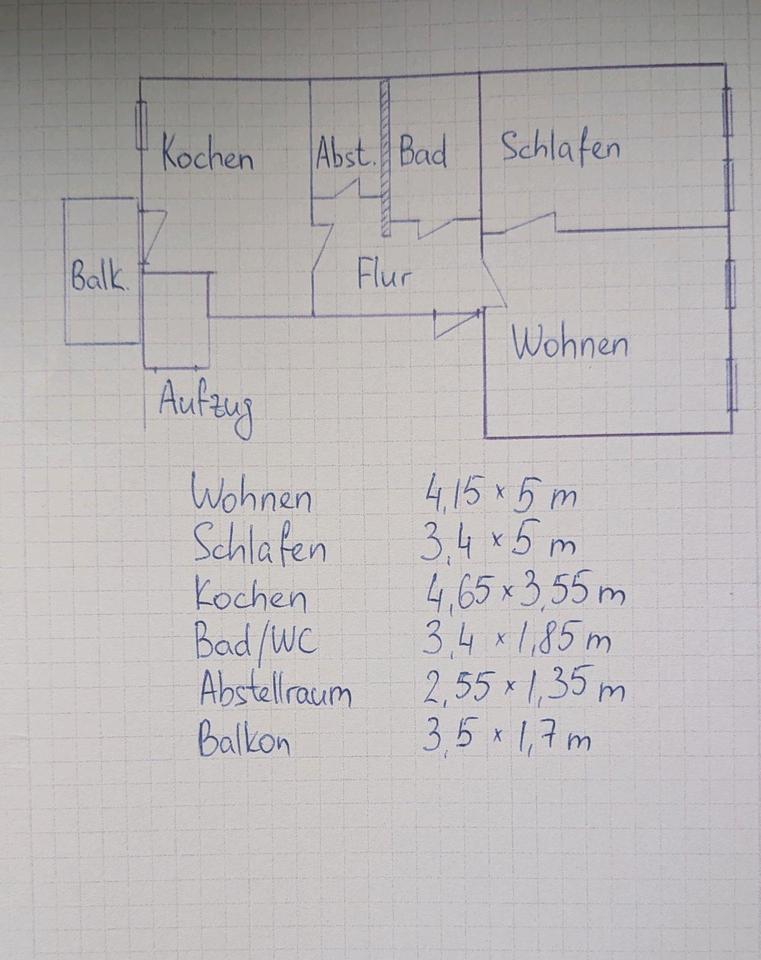 Kochen Abst. Bad Schlafen
Balk. Flur
Wohnen
Aufzug
Wohnen 4,15 × 5 m
Schlafen 3,4 × 5 m
Kochen 4,65 × 3,55 m
Bad/WC 3,4 × 1,85 m
Abstellraum 2,55 × 1,35 m
Balkon 3,5 × 1,7 m